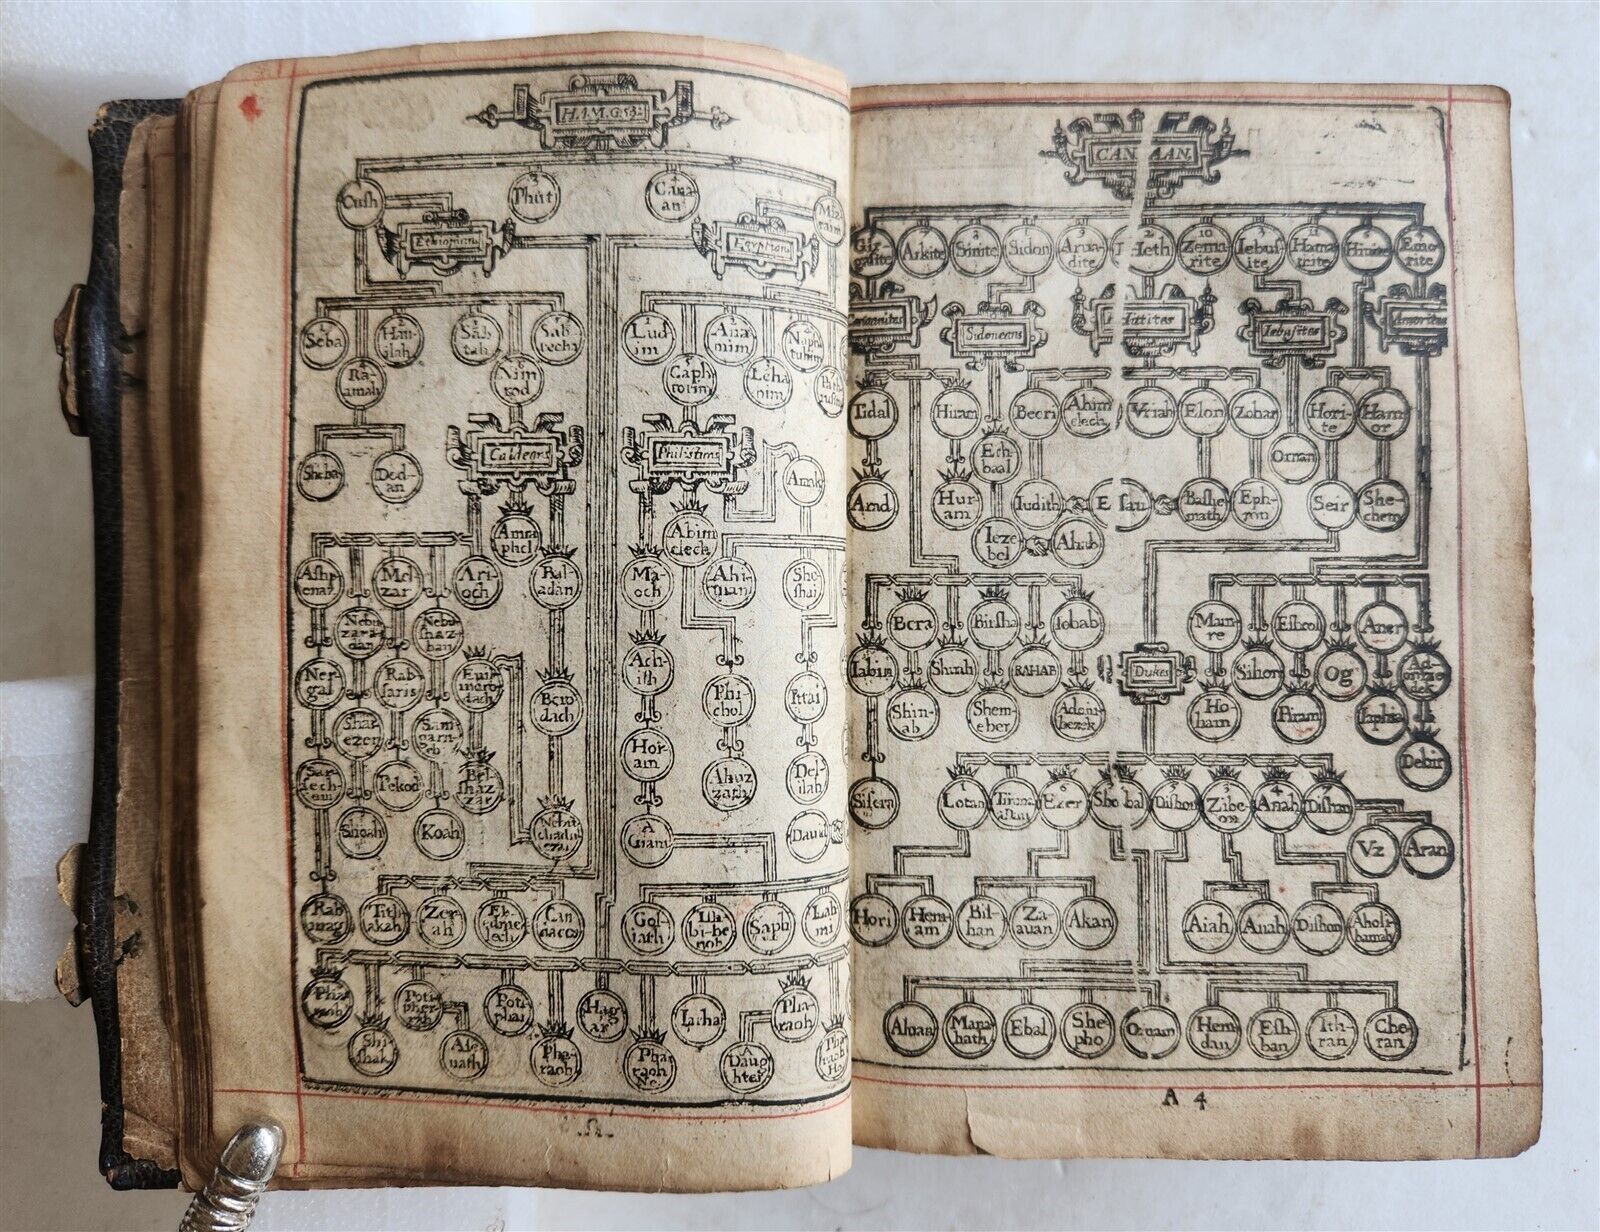 HAM. G.53.
Cush
3 Phut
4 Cana an
Miz raim
Ethiopians
Egyptians
Seba
Hau- ilah
Sab- tah
Sab techa
Lud im
Ana mim
Naph tuhim
Ra- amah
Nim rod
Caph torim
Leha bim
Path rusim
Caldeans
Philistims
Sheba
Ded- an
Amk
Amra phel
Abim elech
Ashp enaz
Mel- zar
Ari- och
Bal- adan
Ma- och
Ahi- man
She- shai
Nebu zara- dan
Nebu shaz- ban
Ner- gal
Rab- saris
Euil merod dach
Bero dach
Ach- ish
Phi- chol
Ittai
Shar- ezer
Sam- garn- eb
Hor- am
Sar- sech- em
Pekod
Bel- shaz- zar
Ahuz zath
Del- ilah
Shoah
Koah
Nebu chadn ezar
A Giant
Dauid
Rab mag
Tirh- akah
Zer- ah
Eb- edme lech
Can daces
Gol- iath
Ish- bi-be nob
Saph
Lah- mi
Pha raoh
Poti pher- ah
Poti phar
Hag ar
Iarha
Pha- raoh
Shi- shak
Ase- nath
Pha- raoh
Pha raoh Ne.
A Daug hter
Pha raoh Ho
CANAAN.
Gir- gasite
Arkite
Sinite
Sidon
Arua- dite
Heth
10 Zema- rite
Iebus- ite
Hama- trite
Hiuite
Emo- rite
Canannites
Sidoneans
Hittites
Iebusites
Amorites
Tidal
Hiram
Beeri
Ahim elech
Vriah
Elon
Zohar
Hori- te
Ham or
Eth baal
Ornan
Arad
Hur- am
Iudith
Esau
Bashe math
Eph- ron
Seir
She- chem
Ieze bel
Ahab
Bera
Birsha
Iobab
Mam- re
Eshcol
Aner
Iabin
Shinab
RAHAB
Dukes
Sihon
Og
Ad- onize dek
Shin- ab
Shem- eber
Adoni bezek
Ho ham
Piram
Iaphia
Debir
Sisera
Lotan
Timna
Ezer
Shobal
Dishon
Zibe- on
Anah
Dishan
Vz
Aran
Hori
Hem- am
Bil- han
Za- auan
Akan
Aiah
Anah
Dishon
Aholi- bamah
Aluan
Mana hath
Ebal
She- pho
Onam
Hem- dan
Esh- ban
Ith- ran
Che- ran
A 4